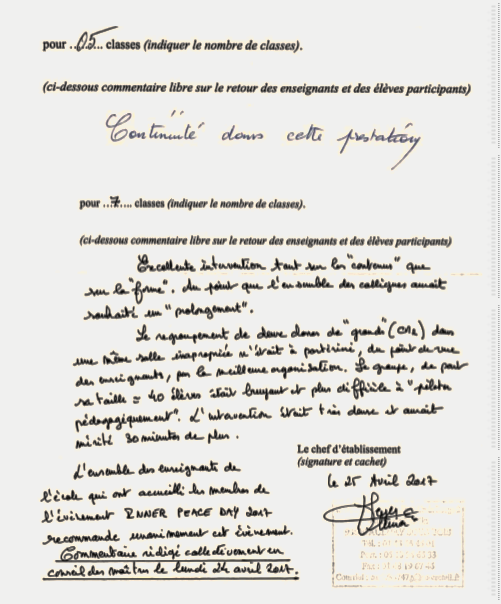 pour ..05... classes (indiquer le nombre de classes).
(ci-dessous commentaire libre sur le retour des enseignants et des élèves participants)
Continuité dans cette prestation
pour ...7.... classes (indiquer le nombre de classes).
(ci-dessous commentaire libre sur le retour des enseignants et des élèves participants)
Excellente intervention tant sur les "contenus" que
sur la "forme". du point que l'ensemble des collègues aurait
souhaité un "prolongement".
Le regroupement de deux classes de "grands" (CM2) dans
une même salle inappropriée n'était à postériori, du point de vue
des enseignants, pas la meilleure organisation. Le groupe, de part
sa taille = 40 élèves était bruyant et plus difficile à "piloter
pédagogiquement". L'intervention était très dense et aurait
mérité 30 minutes de plus.
Le chef d'établissement
(signature et cachet)
L'ensemble des enseignants de
le 25 Avril 2017
l'école qui ont accueilli les membres de
l'évènement INNER PEACE DAY 2017
recommande unanimement cet évènement.
Commentaire rédigé collectivement en
conseil des maîtres le lundi 24 avril 2017.